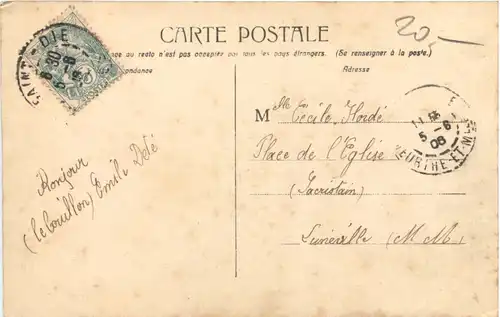 CARTE POSTALE
20
ge au recto n'est pas acceptée par tous les pays étrangers. (Se renseigner à la poste.)
ondance
Adresse
SAINT-DIÉ
8 30
5 -8
Mlle Cécile Hordé
Place de l'Eglise
(Sacristain)
Lunéville (M M)
11 55
5 -8
08
MEURTHE-ET-M
Bonjour
(le bouillon) Emile Dedé